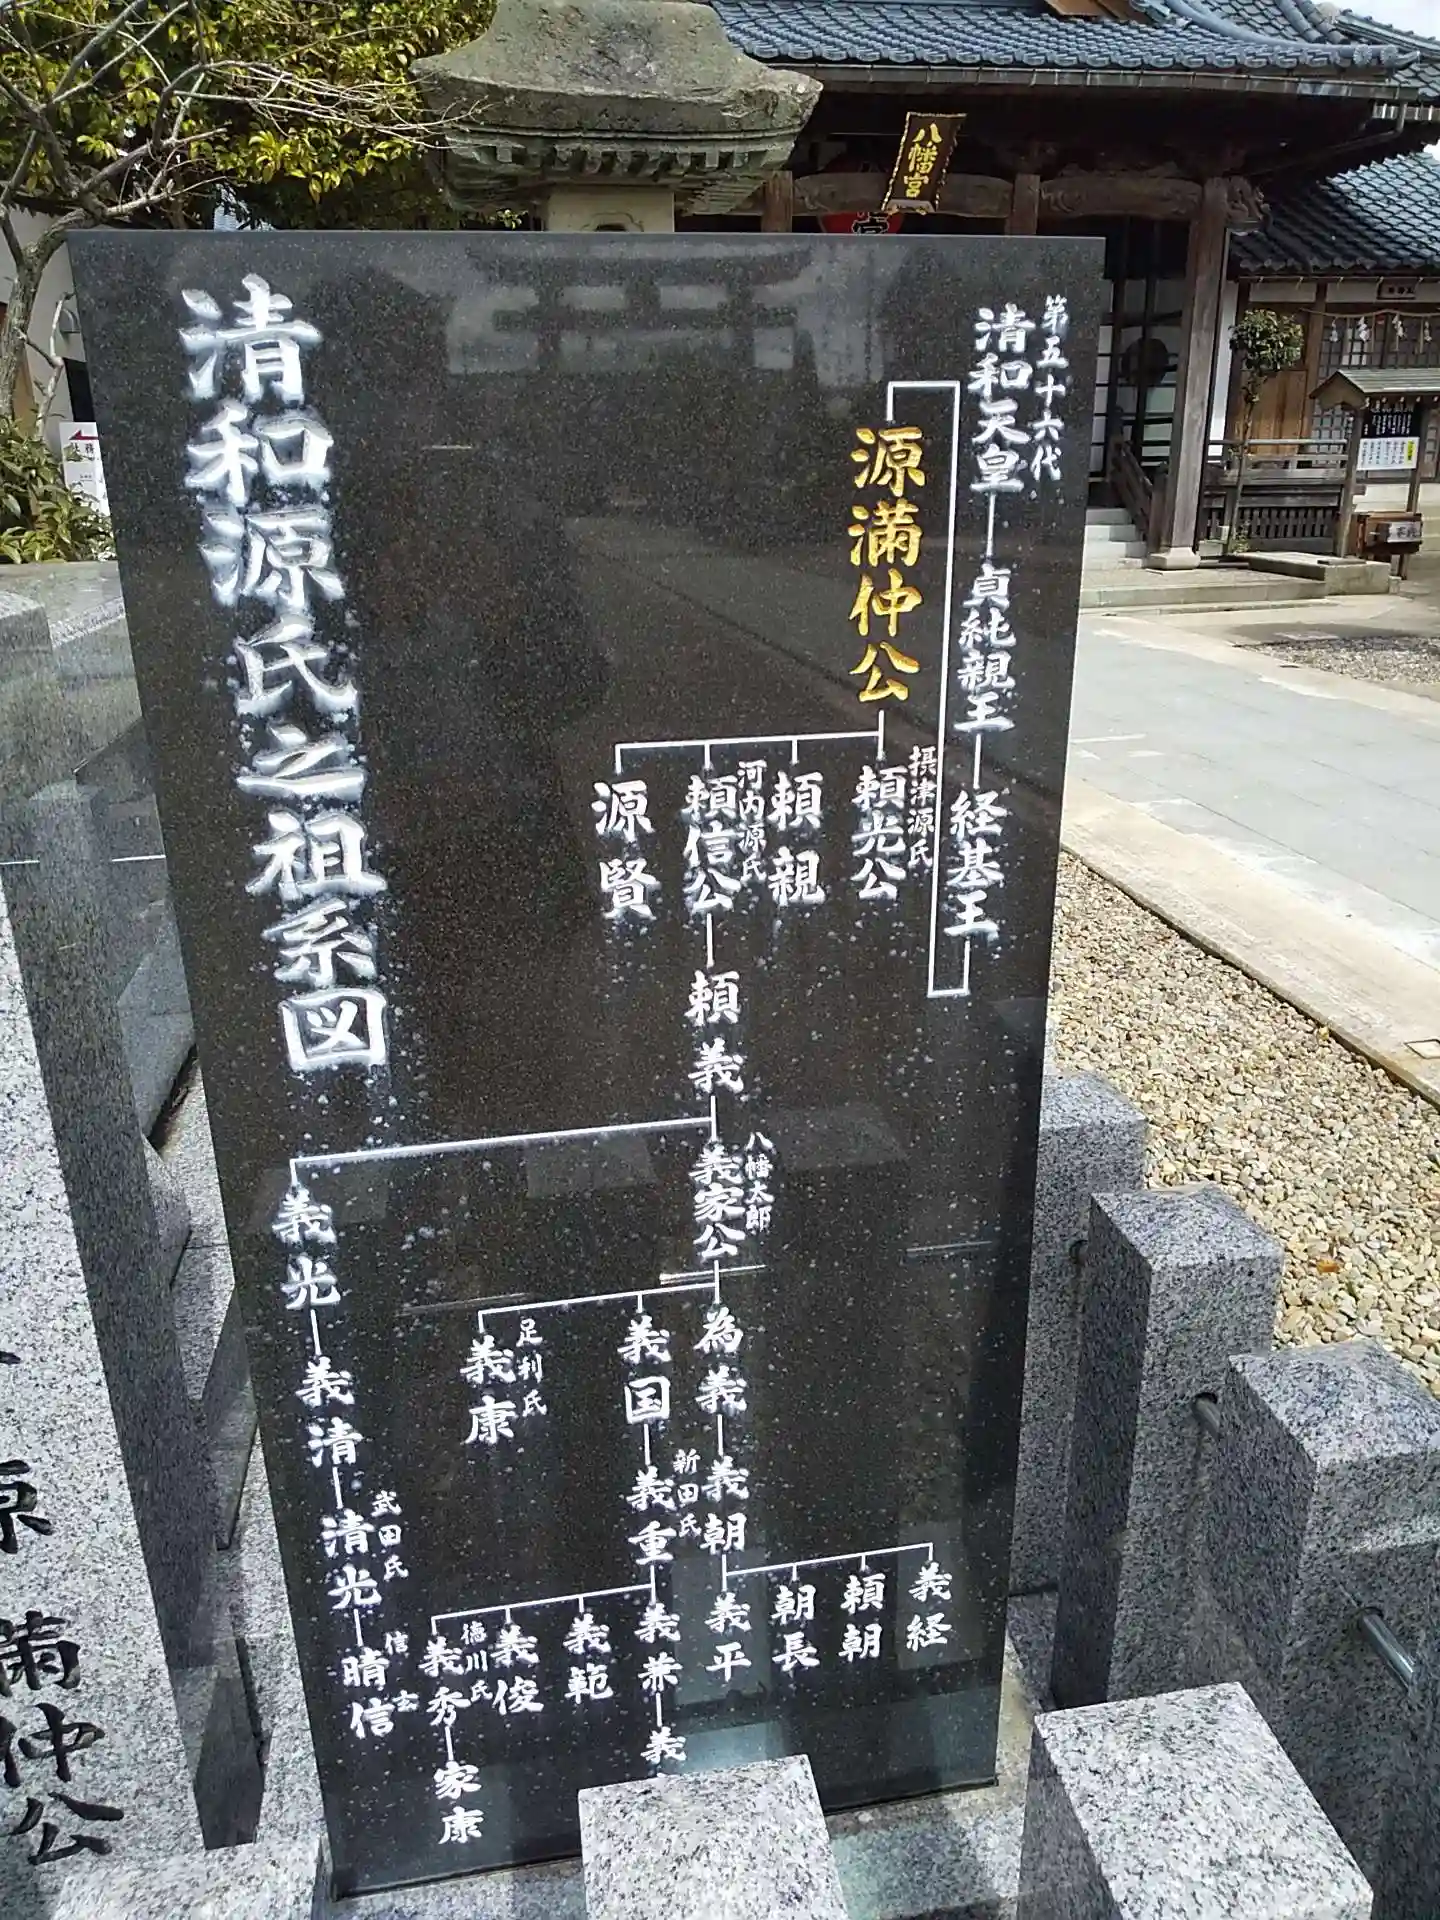 八幡宮
第五十六代
清和天皇
貞純親王
経基王
源満仲公
摂津源氏
頼光公
頼親
河内源氏
頼信公
源賢
頼義
八幡太郎
義家公
義光
為義
義国
足利氏
義康
義朝
新田氏
義重
義経
頼朝
朝長
義平
義兼
義
義範
義俊
徳川氏
義秀
家康
義清
武田氏
清光
信玄
晴信
清和源氏之祖系図
満仲公